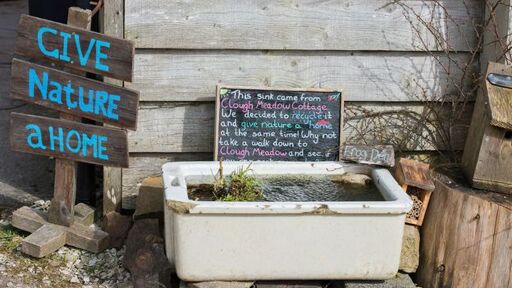 GIVE
Nature
a HOME
This sink came from
Clough Meadow Cottage
We decided to recycle it
and give nature a home
at the same time! Why not
take a walk down to
Clough Meadow and see